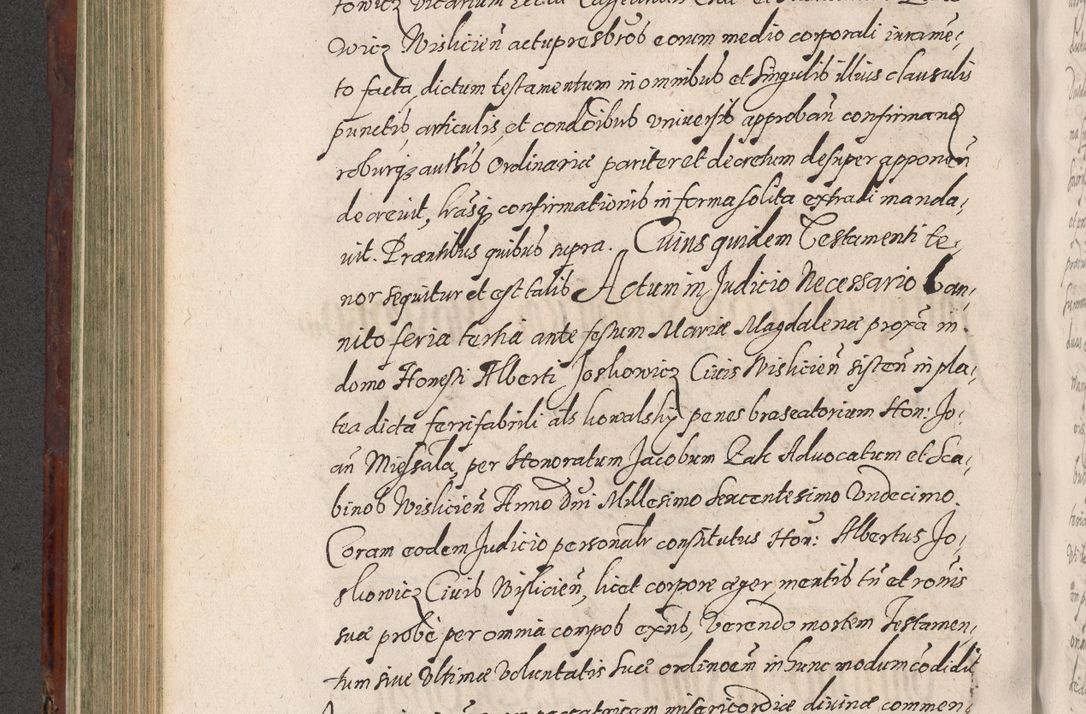 wicz Wislicien̄ actu presbr̄os eorum medio corporali iurame,
to facta, dictum testamentum in omnibus et singulis illius clausulis
punctis, articulis, et condōibus vniuersis approban̄ confirmand
roburq; auth̄is Ordinariæ pariter et decretum desuper apponen̄
decreuit, lr̄asq; confirmationis in forma solita extradi manda,
uit. Præn̄tibus quibus supra. Cuius quidem Testamenti te,
nor sequitur et est talis Actum in Judicio Necessario ban,
nito feria tertia ante festum Mariæ Magdalenæ proxā in
domo Honesti Alberti Joskowicz Ciuis Wislicien̄ sisten̄ in pla,
tea dicta ferrifabrili als kowalsky penes braseatorium Hon: Jo,
an̄ Miessala, per Honoratum Jacobum Zak Aduocatum et Sca,
binos Wislicien̄ Anno Dn̄i Millesimo Sexcentesimo Vndecimo.
Coram eodem Judicio personalr constitutus Hon: Albertus Jo,
skowicz Ciuis Wislicien̄, licet corpore æger, mentis tn̄ et ron̄is
suæ probè per omnia compos exn̄s, verendo mortem Testamen,
tum siue Vltimæ Voluntatis suæ ordinōen̄ in hunc modum cōdidit
misericordiæ diuinæ commen,